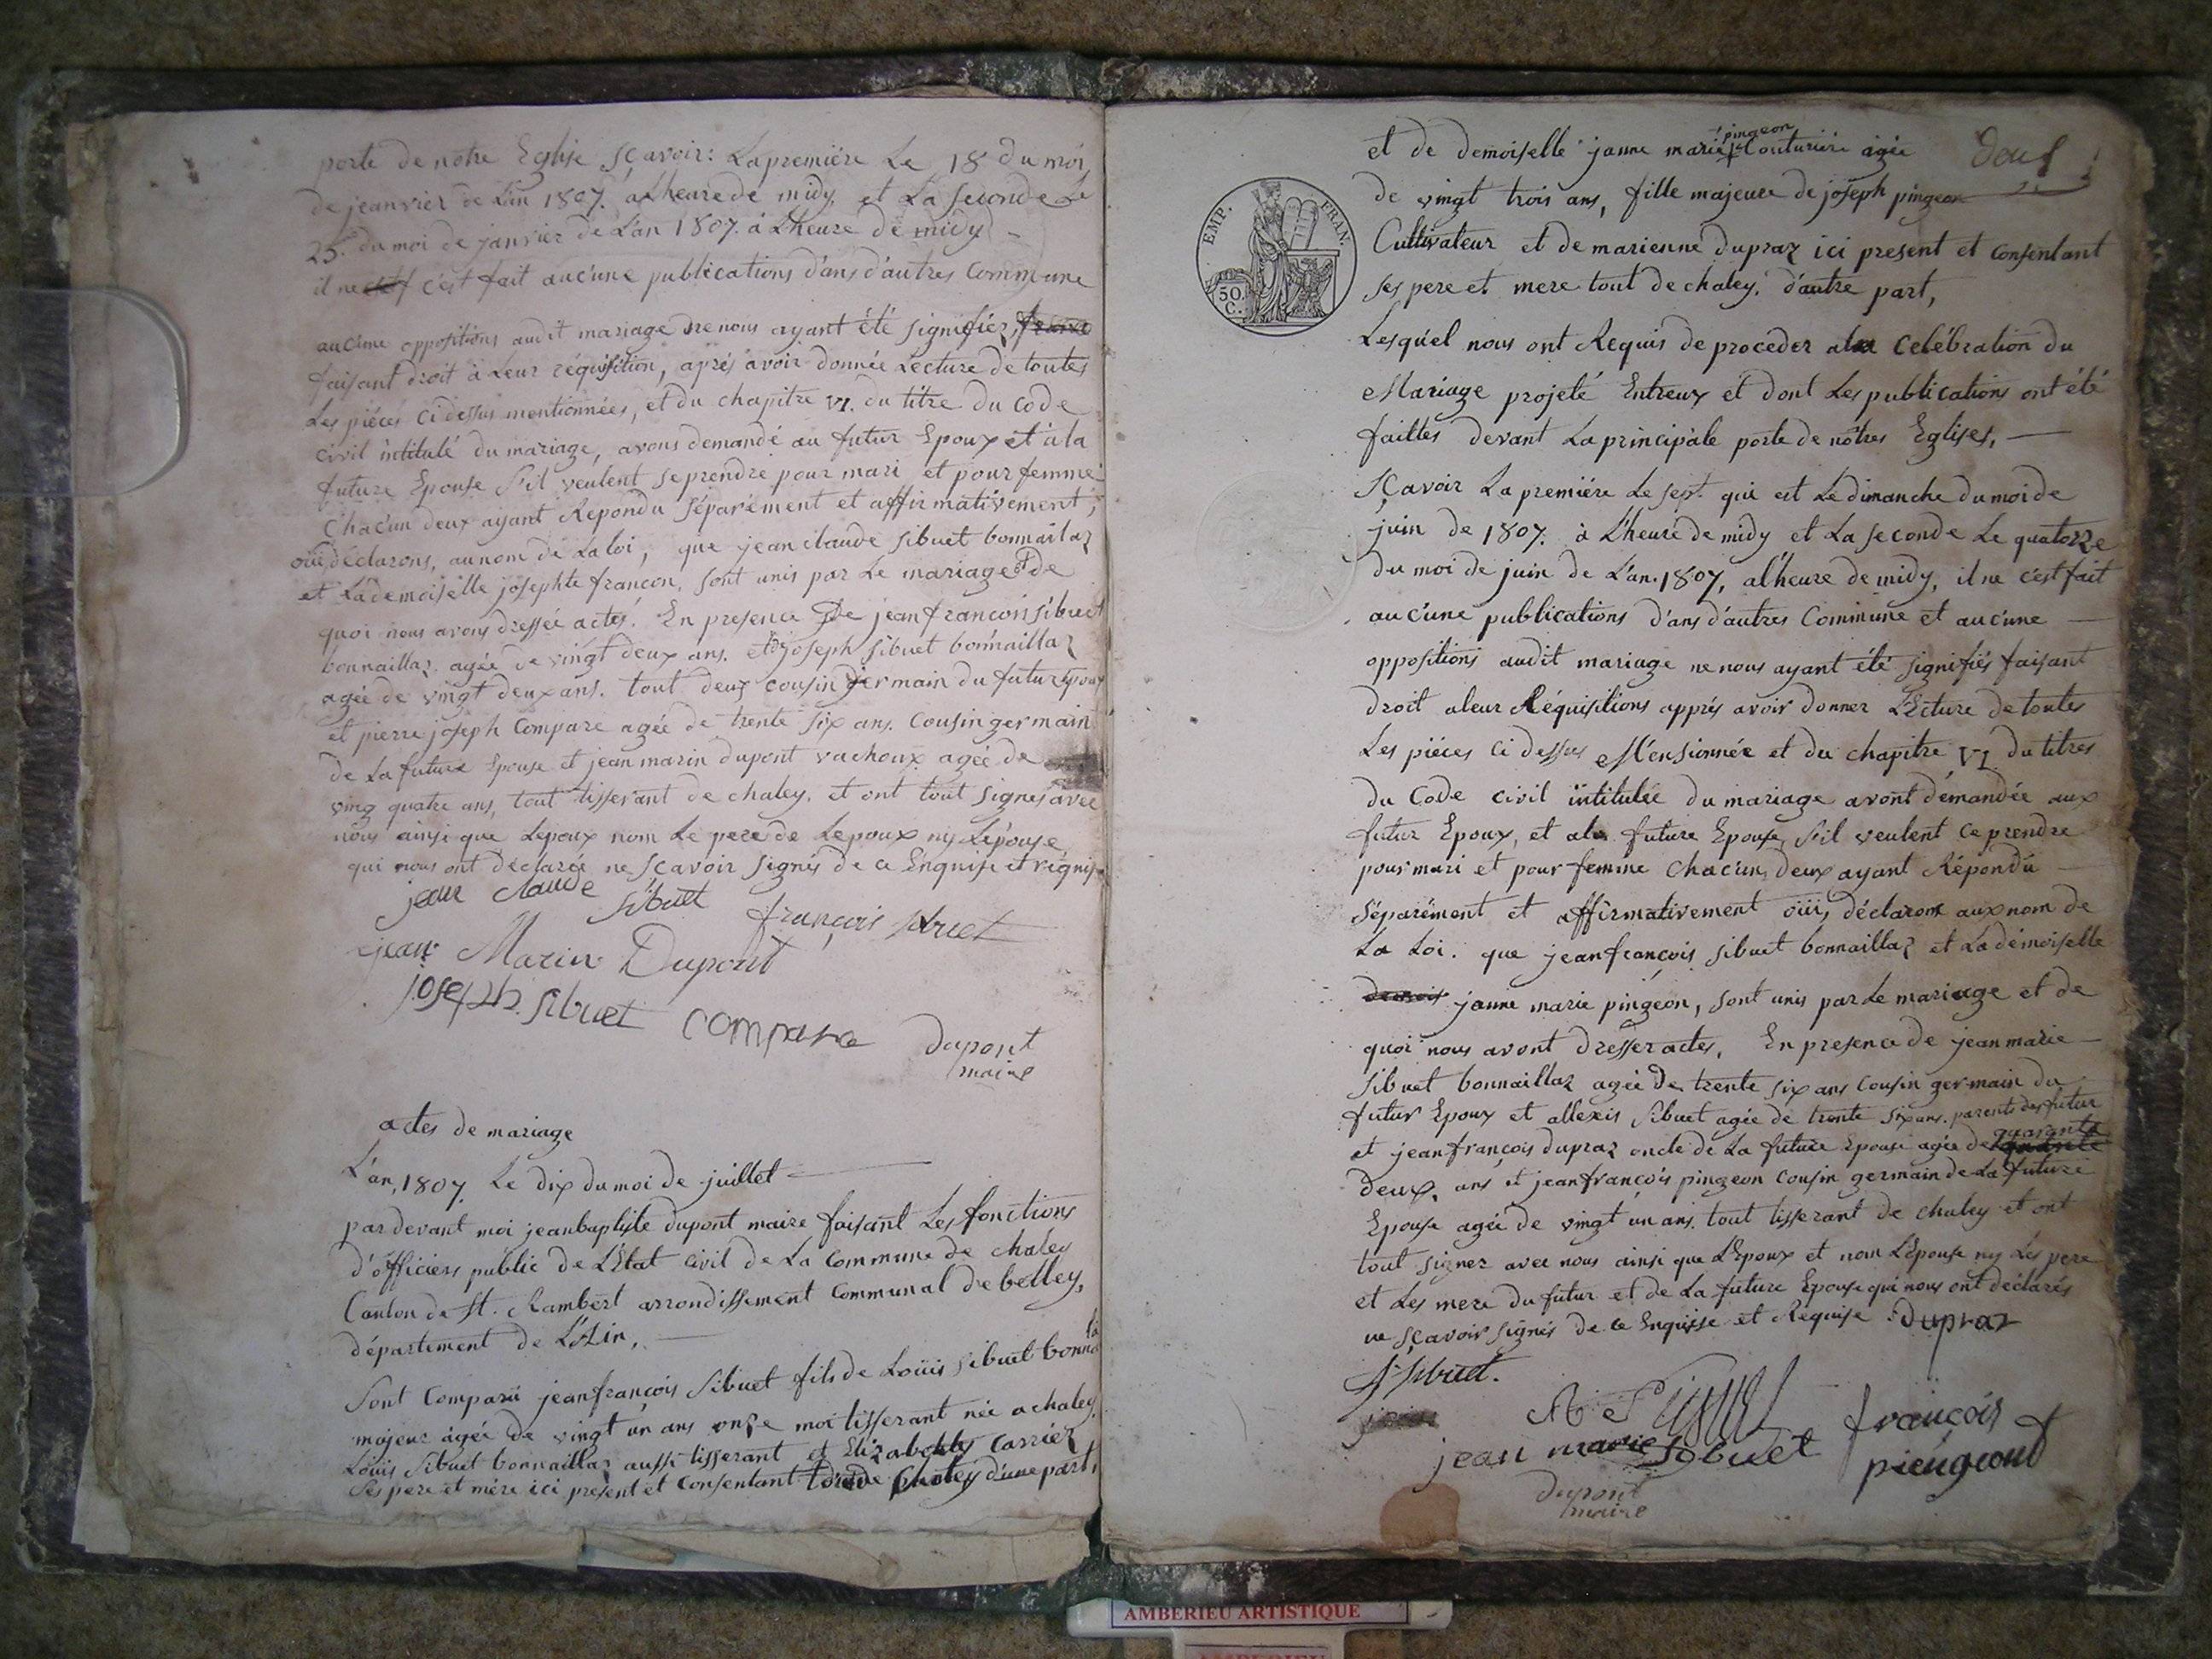 porte de notre Eglise sçavoir: La premiére Le 18 du moi
de jeanvier de L'an 1807. a L'heure de midy et La seconde Le
25. du moi de janvier de L'an 1807. à L'heure de midy
il ne c'est fait auc'une publications d'ans d'autres Commune
auc'une oppositions audit mariage ne nous ayant été signifiéz,
faisant droit à Leur réquisition, aprés avoir donnée Lecture de toutes
Les piéces ci dessus mentionnées, et du chapitre VI. du titre du Code
Civil intitulé du mariage, avons demandé au futur Epoux et à la
future Epouse s'il veulent se prendre pour mari et pour femme
Chac'un deux ayant Repondu séparément et affirmativement,
oui, déclarons, au nom de La loi, que jean claude sibuet bonnaillaz
et La demoiselle josephte francon, sont unis par Le mariage et de
quoi nous avons dressée actes. En presence De jean francois sibuet
bonnaillaz agée de vingt deux ans. et joseph sibuet bonnaillaz
agée de vingt deux ans. tout deux cousin germain du futur Epoux
et pierre joseph Compare agée de trente six ans. Cousin germain
de La future Epouse et jean marin dupont vachoux agée de
ving quatre ans, tout tisserant de chaley. et ont tout signés avec
nous ainsi que Lepoux nom Le pere de Lepoux ny Lépouse
qui nous ont déclarée ne sçavoir signés de ce Enquise et réquise
jean claude sibuet françois sibuet
jean Marin Dupont
joseph sibuet compare dupont
maire
actes de mariage
L'an, 1807. Le dix du moi de juillet
par devant moi jean baptiste dupont maire faisant Les fonctions
d'officiers public de L'Etat Civil de La Commune de chaley
Canton de St. Rambert arrondissement Communal de belley,
département de L'Ain,
Sont Comparu jean françois Sibuet fils de Loüis sibuet bonna
majeur agée de vingt un ans onze moi tisserant née a chaley.
Loüis sibuet bonnaillaz aussi tisserant et Elizabethty Carriéz
ses pere et mére ici présent et Consentant de Chaley d'une part,
et de demoiselle janne marie pingeon Couturiére agée
de vingt trois ans, fille majeure de joseph pingeon
EMP. FRAN.
50.
C.
Cultivateur et de marienne dupraz ici present et Consentant
ses pere et mere tout de chaley. d'autre part,
Lesquel nous ont Requis de proceder a la Celébration du
Mariage projeté Entreux et dont Les publications ont été
faittes devant La principale porte de nôtres Eglises,
Sçavoir La premiére Le sept. qui est Le dimanche du moi de
juin de 1807. à L'heure de midy et La seconde Le quatorze
du moi de juin de L'an. 1807, al'heure de midy, il ne c'est fait
auc'une publications d'ans d'autres Commune et auc'une
oppositions audit mariage ne nous ayant été signifiés faisant
droit a leur Réquisitions apprés avoir donner L'Ecture de toutes
Les piéces Ci dessus Mensionnée et du chapitre VI du titres
du Code civil intitulée du mariage avont démandée aux
futur Epoux, et a la future Epouse s'il veulent ce prendre
pour mari et pour femme Chac'un deux ayant Répondu
séparément et affirmativement oüi, déclaront aux nom de
La Loi. que jean françois sibuet bonnaillaz et La demoiselle
janne marie pingeon, sont unis par Le mariage et de
quoi nous avont dresser actes, En presence de jean marie
sibuet bonnaillaz agée de trente six ans Cousin germain du
futur Epoux et allexis sibuet agée de trente six ans. parents des futur
et jean françois dupraz oncle de La future Epouse agée de quarante
deux. ans et jean françois pingeon Cousin germain de La future
Epouse agée de vingt un ans. tout tisserant de chaley et ont
tout signer avec nous ainsi que L'Epoux et nom L'Epouse ny Les pere
et Les mere du futur et de La future Epouse qui nous ont declarés
ne sçavoir signés de ce Enquisse et Requise Dupraz
f sibuet.
françois
jean marie sibuet pieugeont
dupont
maire
AMBERIEU ARTISTIQUE
AMBERIEU